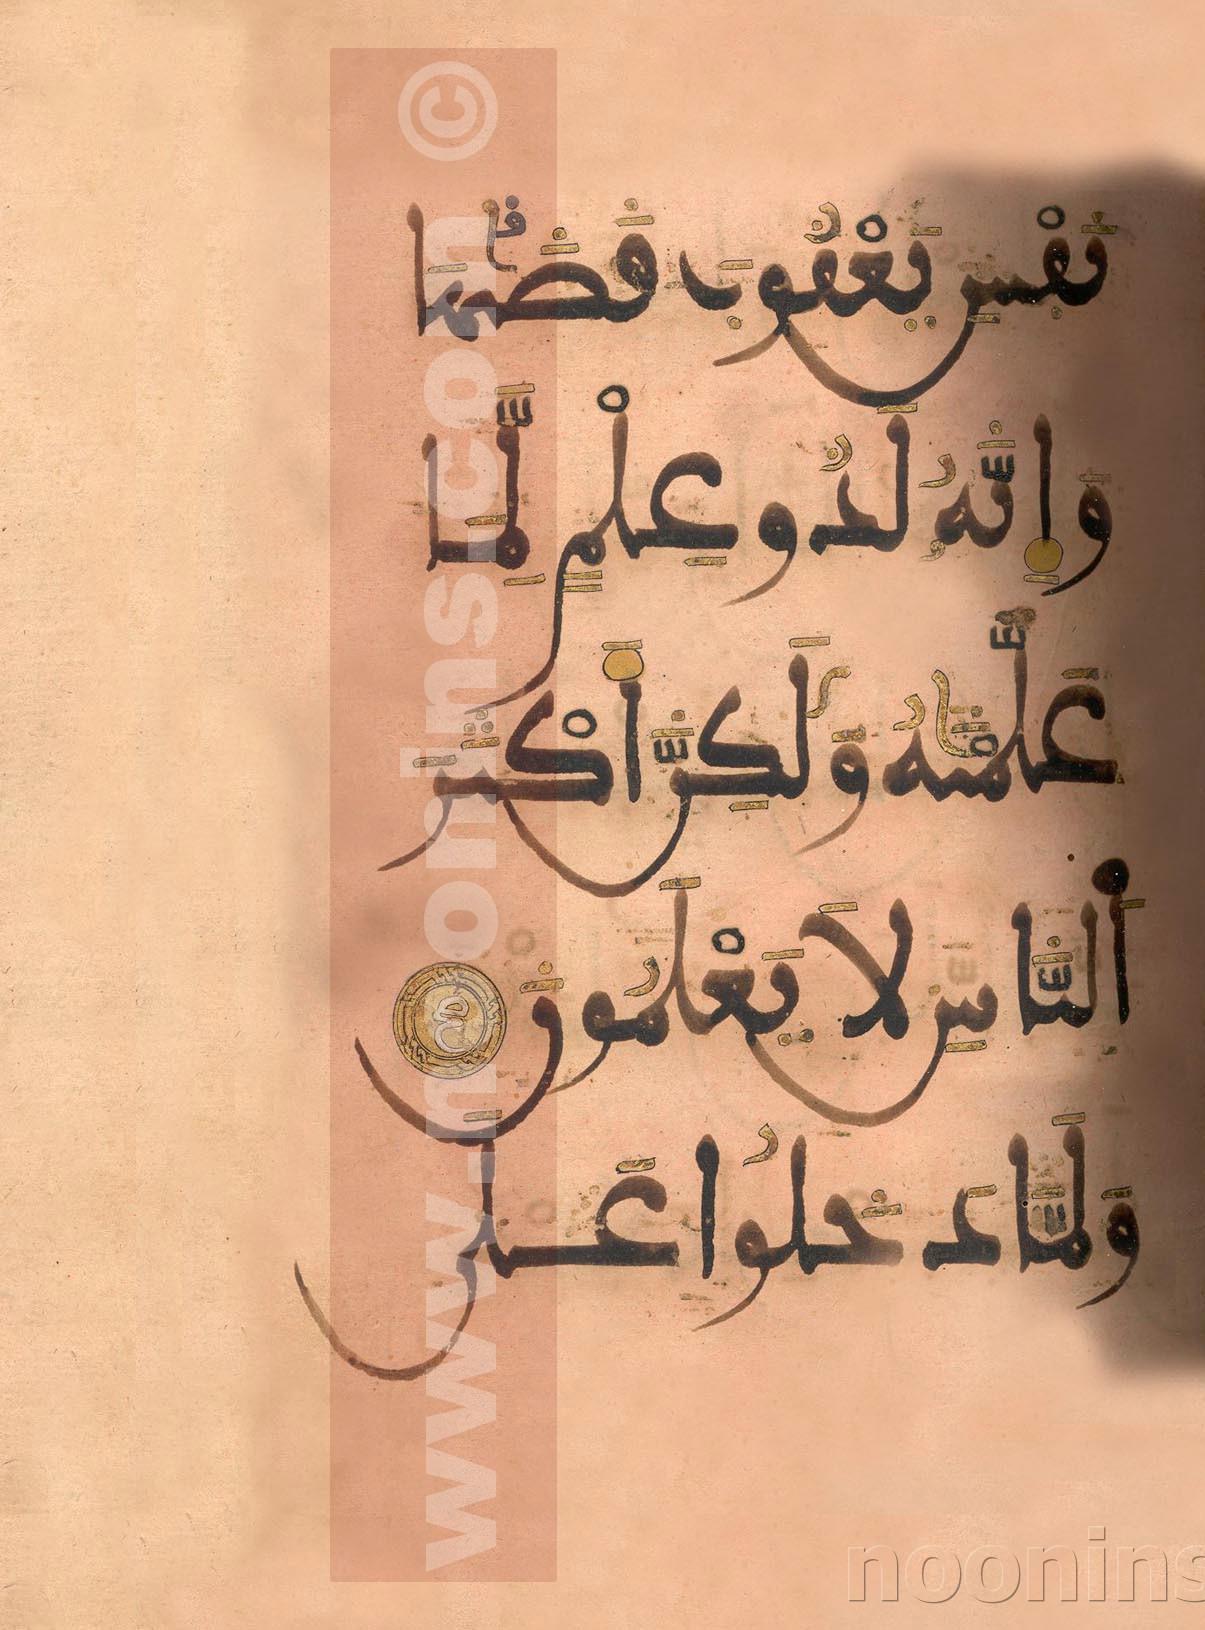 نَفْسِ يَعْقُوبَ قَضَىٰهَا
وَإِنَّهُ لَذُو عِلْمٍ لِّمَا
عَلَّمْنَٰهُ وَلَٰكِنَّ أَكْثَرَ
ٱلنَّاسِ لَا يَعْلَمُونَ
وَلَمَّا دَخَلُوا عَلَى
www.noonins.com ©
noonins